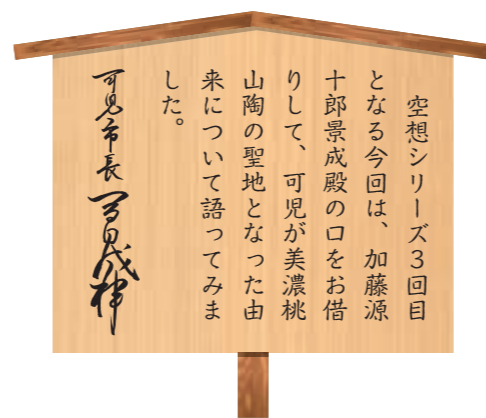 空想シリーズ３回目
となる今回は、加藤源
十郎景成殿の口をお借
りして、可児が美濃桃
山陶の聖地となった由
来について語ってみま
した。
可児市長